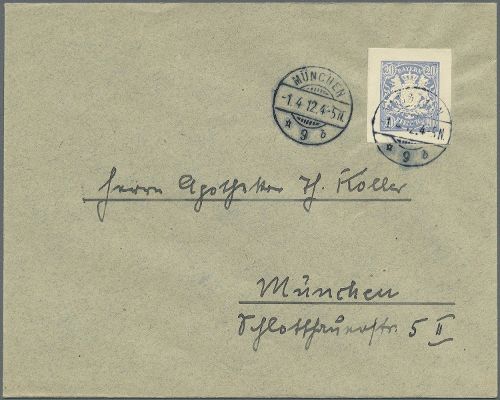 MÜNCHEN
-1.4.12.4-5N.
* 9 b
20 BAYERN 20
Herrn Apotheker Th. Koller
München
Schlotthauerstr. 5 II